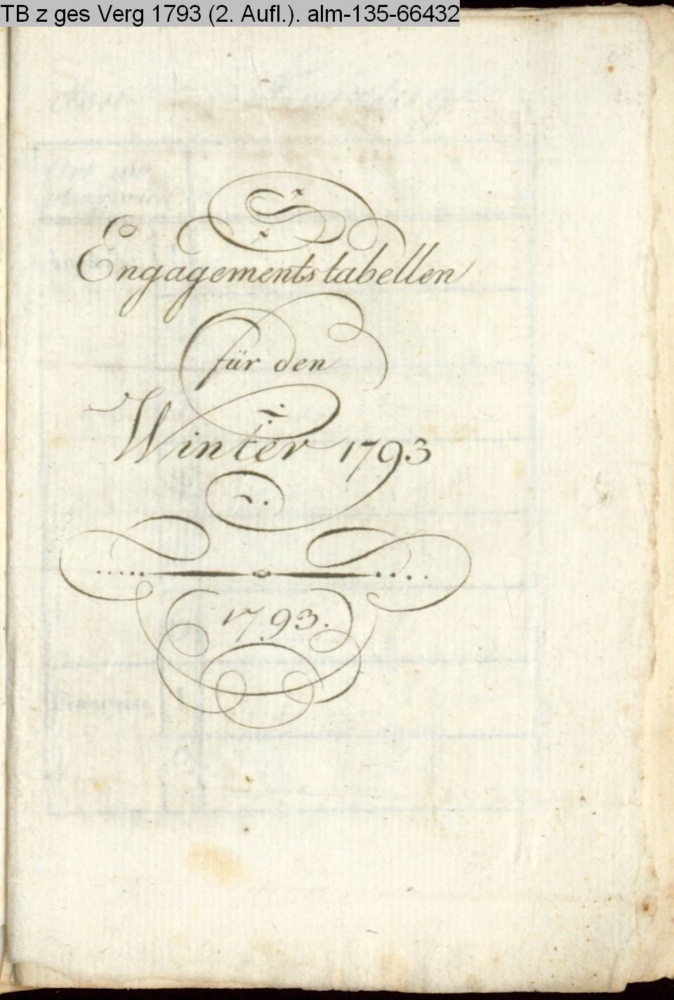 TB z ges Verg 1793 (2. Aufl.). alm-135-66432
Engagementstabellen
für den
Winter 1793
1793.